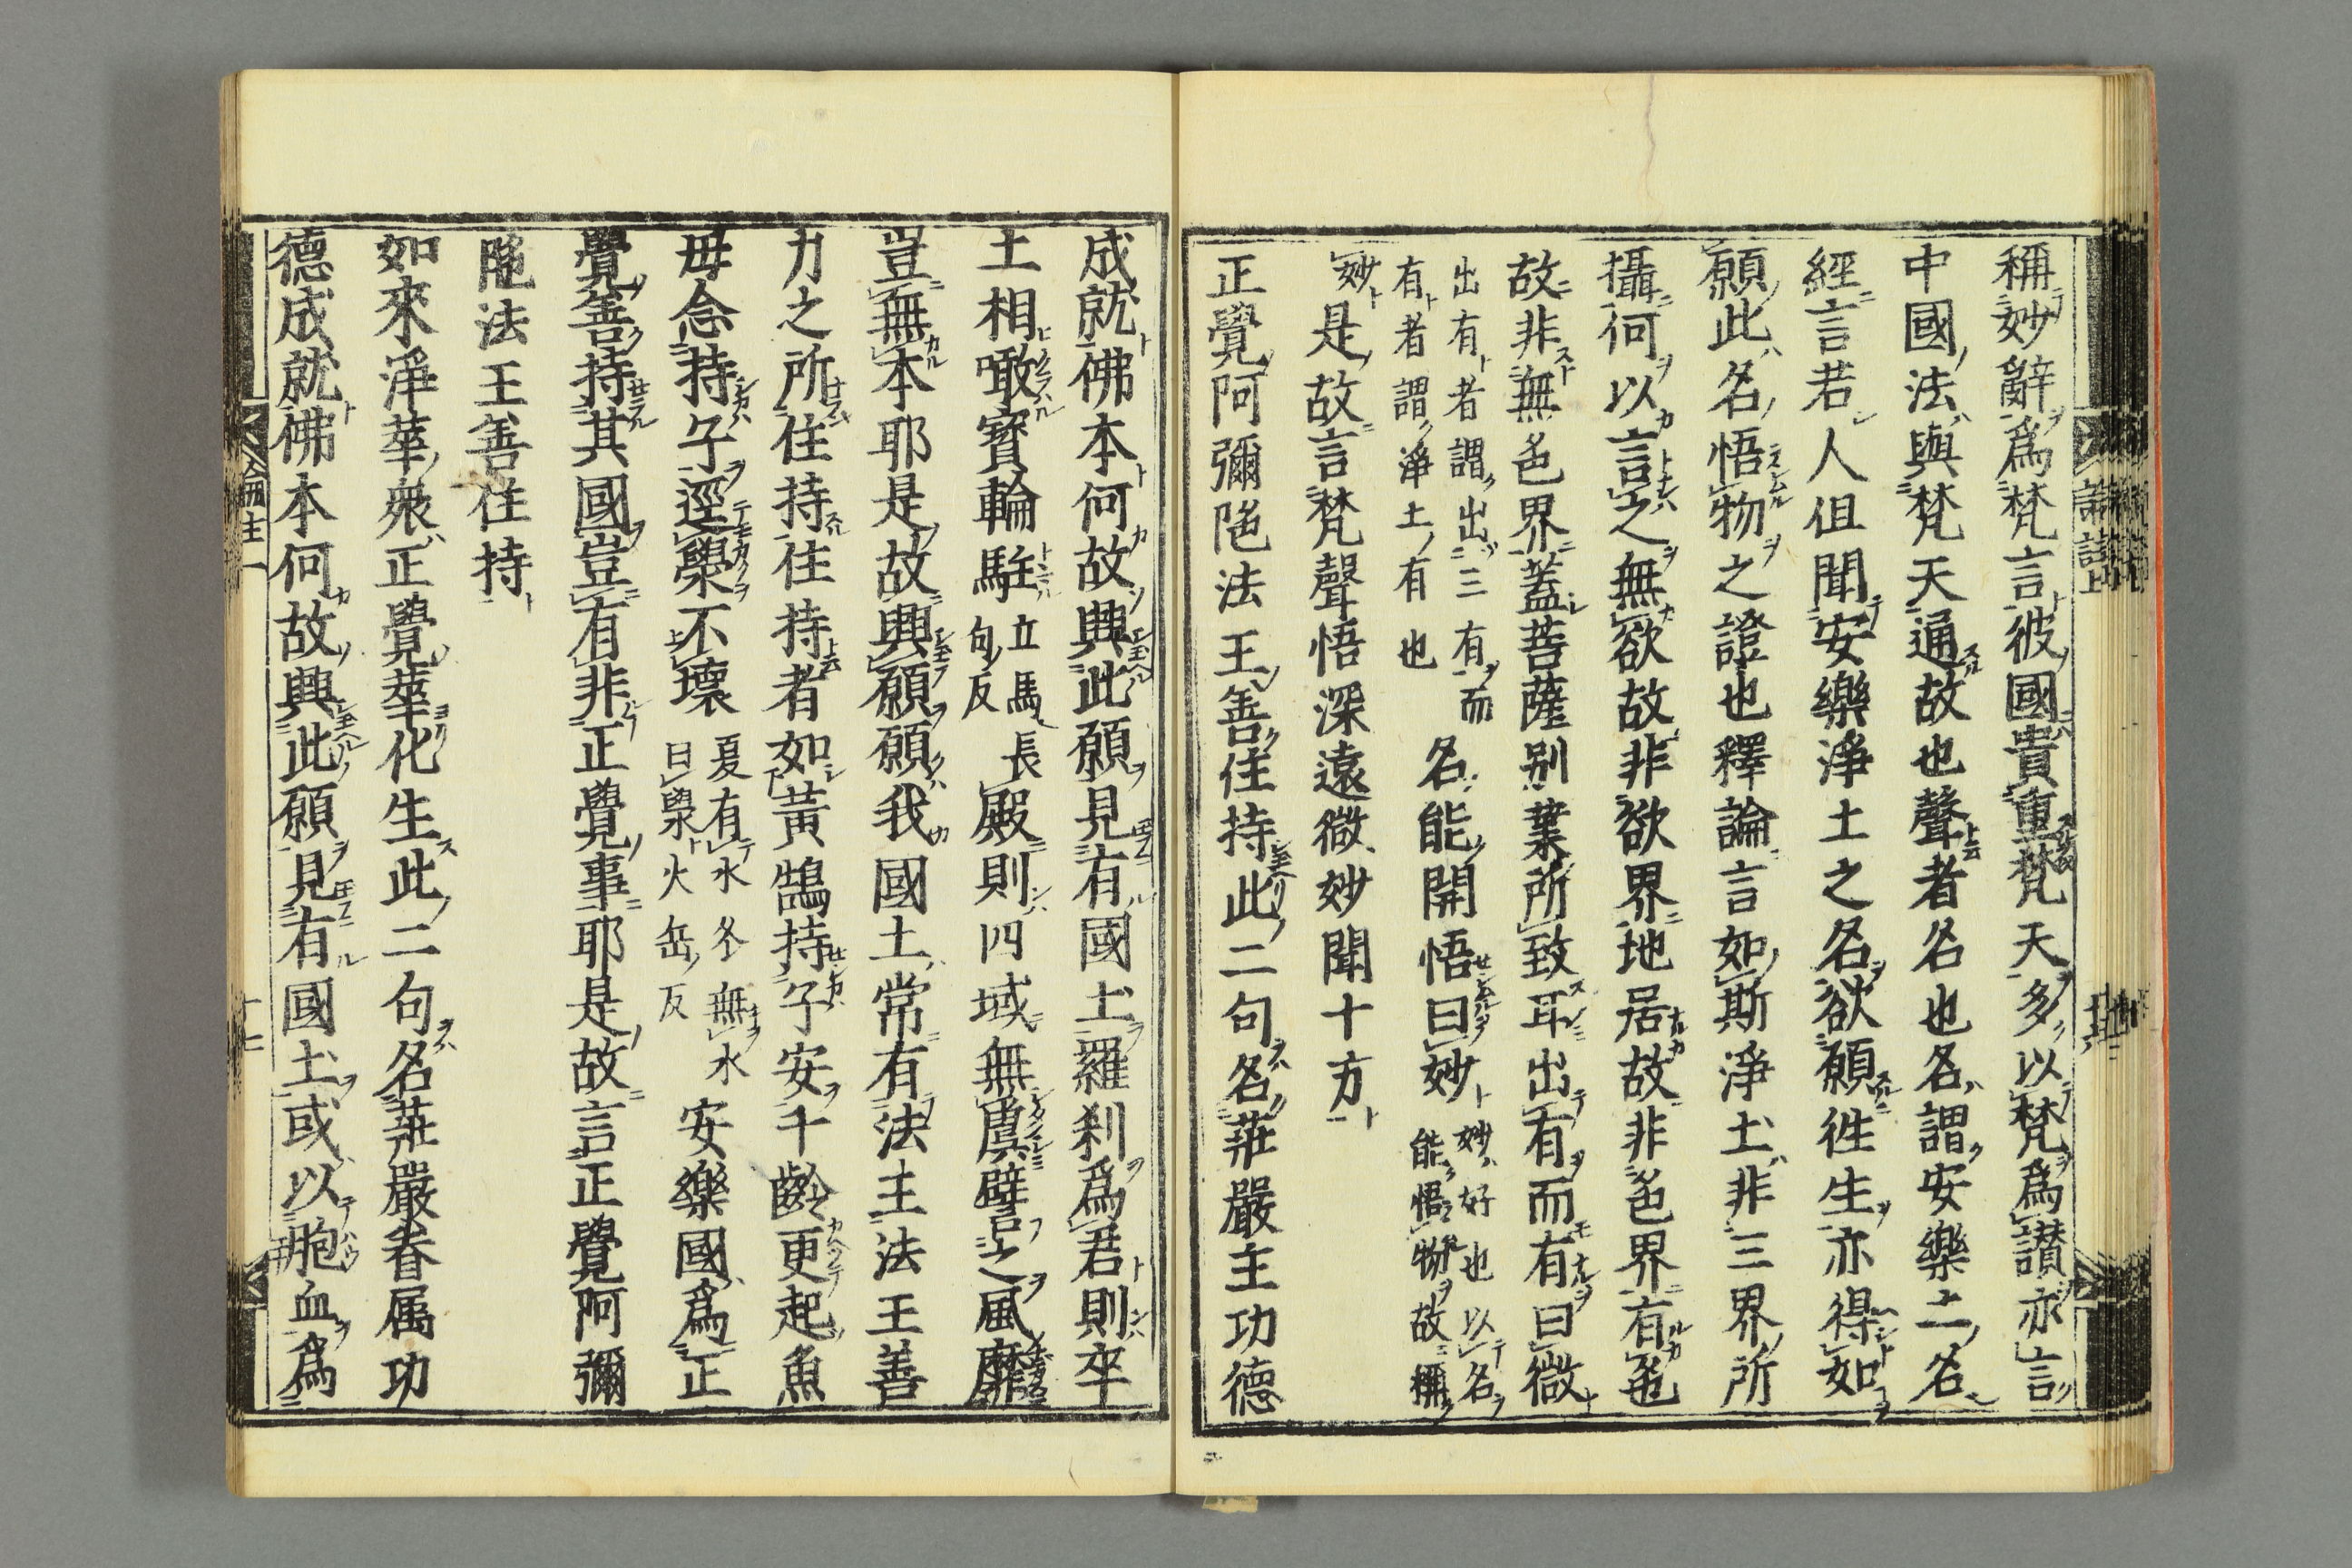 稱妙辭爲梵言彼國貴重梵天多以梵爲讃亦言
中國法與梵天通故也聲者名也名謂安樂土名
經言若人但聞安樂淨土之名欲願徃生亦得如
願此名悟物之證也釋論言如斯淨土非三界所
攝何以言之無欲故非欲界地居故非色界有色
故非無色界蓋菩薩别業所致耳出有而有曰微
出有者謂出三有而
有者謂淨土有也
名能開悟曰妙
妙好也以名
能悟物故稱
妙是故言梵聲悟深遠微妙聞十方
正覺阿彌陁法王善住持此二句名莊嚴主功德
成就佛本何故興此願見有國土羅刹爲君則卒
土相噉寳輪駐
立馬長
句反
殿則四域無虞譬之風靡
豈無本耶是故興願願我國土常有法王法王善
力之所住持住持者如黃鵠持子安千齡更起魚
母念持子逕澩不壞
夏有水冬無水
曰澩火岳反
安樂國爲正
覺善持其國豈有非正覺事耶是故言正覺阿彌
陁法王善住持
如來淨華衆正覺華化生此二句名莊嚴眷属功
德成就佛本何故興此願見有國土或以胞血爲
論註一
十二